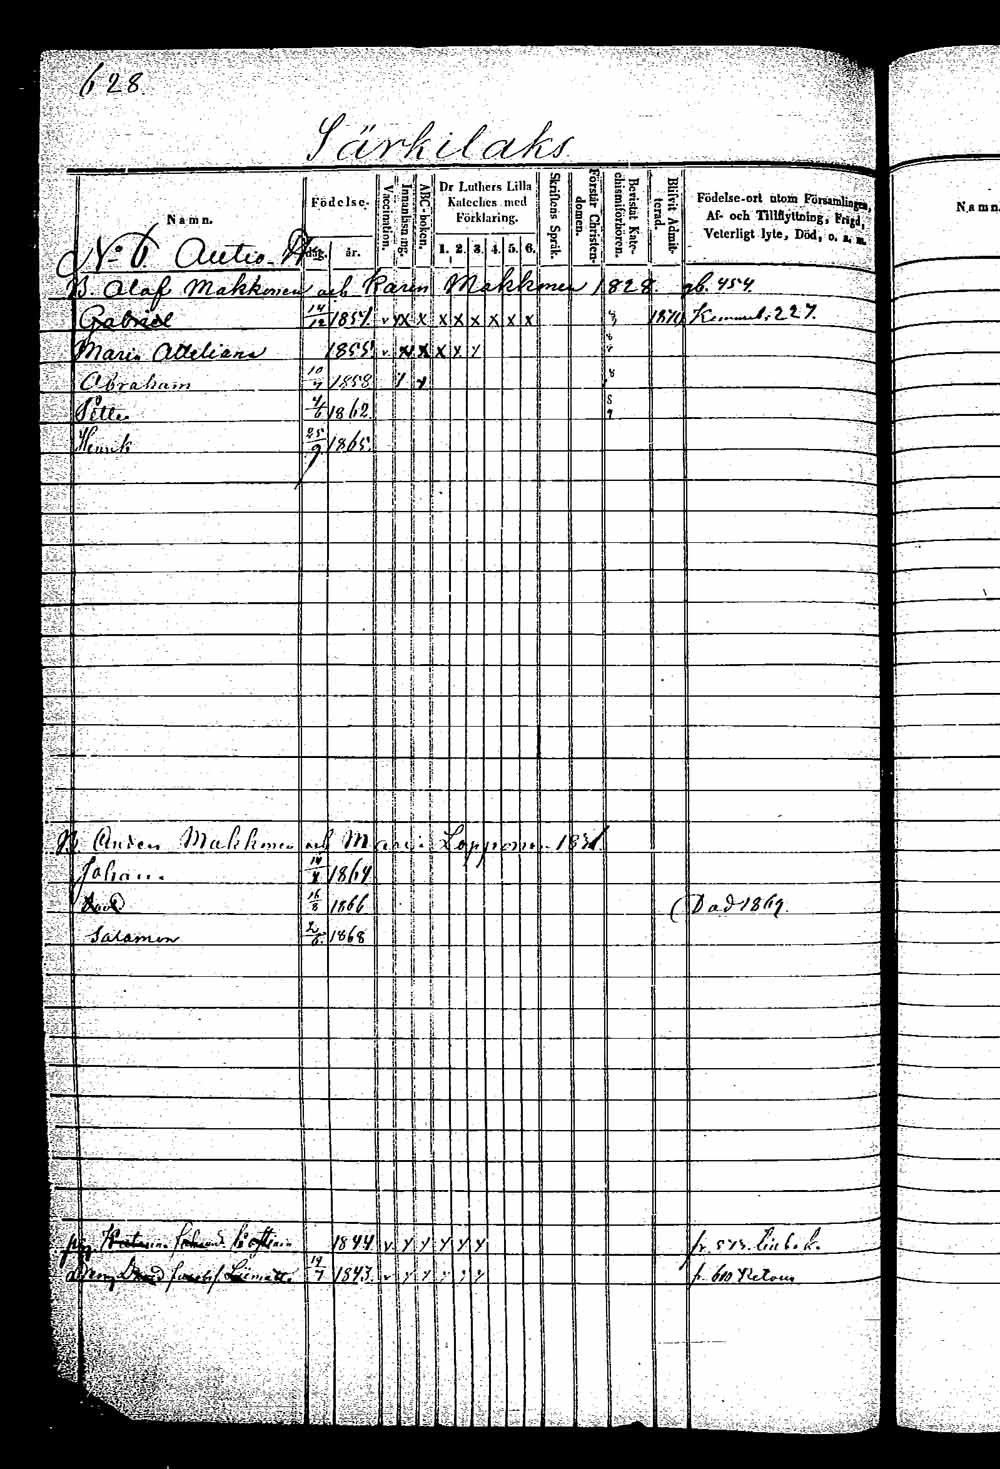 628.
Särkilaks
Namn. Födelse- dag. år. Vaccination. Innanläsning. ABC-boken. Dr Luthers Lilla Kateches med Förklaring. 1. 2. 3. 4. 5. 6. Skriftens Språk. Förstår Christendomen. Bevistat Katechismiförhören. Blifvit Admitterad. Födelse-ort utom Församlingen, Af- och Tillflyttning, Frigd, Veterligt lyte, Död, o. s. m.
Namn
No 6. Autio
B. Olof Makkonen och Karin Makkonen 1828. gb. 454
Gabriel 14/12 1851. v y x x x x x x x x 1870 227.
Maria 1855. v x x x x y
Abraham 10/7 1858 y y
Petter 4/6 1862.
Henrik 25/9 1865.
B. Anders Makkonen och Maria Lopponen
Johan 1864
16/8 1866 (Död 1869.
Salamon 1868
1844. v y y y y y fr. 575.
19/7 1843. v y y y y y fr. 600